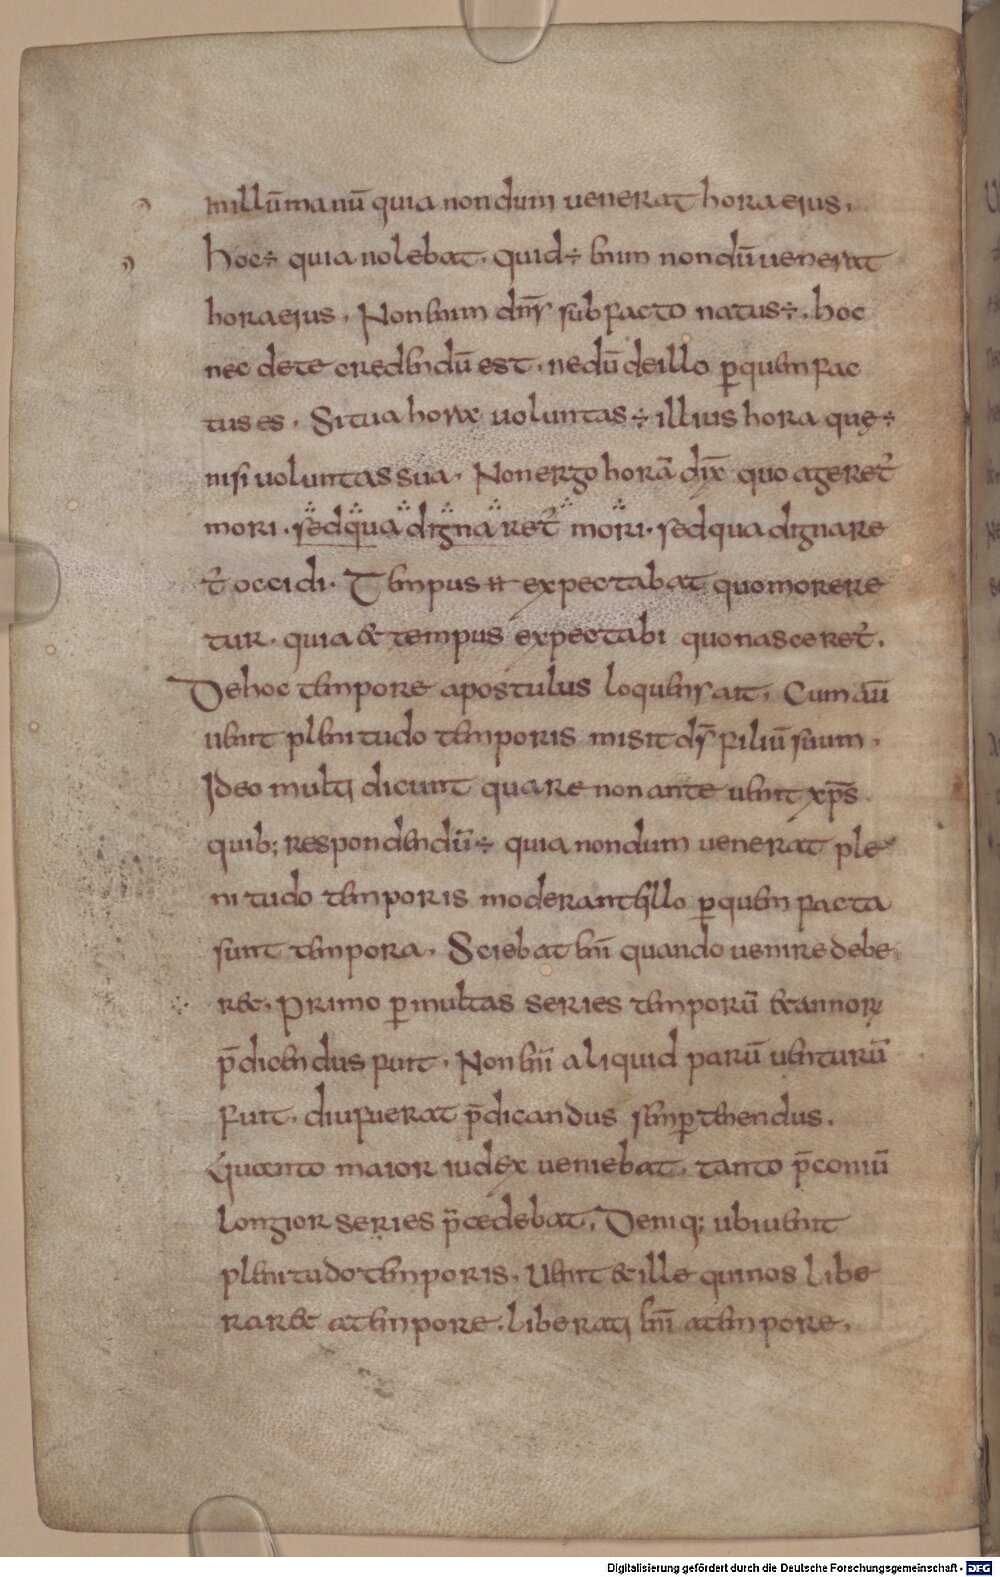 millū manū quia nondum uenerat hora eius,
hoc÷ quia nolebat. quid÷ enim nondū uenerat
hora eius, Non enim dn̄s sub facto natus÷. hoc
nec dete credendū est, nedū deillo ꝑquem fac
tus es, Si tua hora uoluntas÷ illius hora quę÷
nisi uoluntas sua, Non ergo horā dix̄ quo ageret᷑
mori. sed qua dignaret᷑ mori. sed qua dignare
t᷑ occidi. Tempus ħ expectabat quo morere
tur. quia & tempus expectabi quo nasceret᷑.
De hoc tempore apostulus loquens ait, Cum aū
uenit plenitudo temporis misit ds̄ filiū suum,
Ideo multi dicunt quare non ante uenit xp̄s
quib; respondendū÷ quia nondum uenerat ple
nitudo temporis moderante illo ꝑquem facta
sunt tempora, Sciebat eni̅ quando uenire debe
r&, Primo ꝑ multas series temporū &annorꝝ
p̄dicendus fuit, Non eni̅ aliquid parū uenturū
fuit, diu fuerat p̄dicandus semꝑ tenendus.
Quanto maior iudex ueniebat, tanto p̄coniū
longior series p̄cedebat, Deniq; ubi uenit
plenitudo temporis, Uenit & ille qui nos libe
rar& a tempore. liberati eni̅ a tempore,
Digitalisierung gefördert durch die Deutsche Forschungsgemeinschaft - DFG